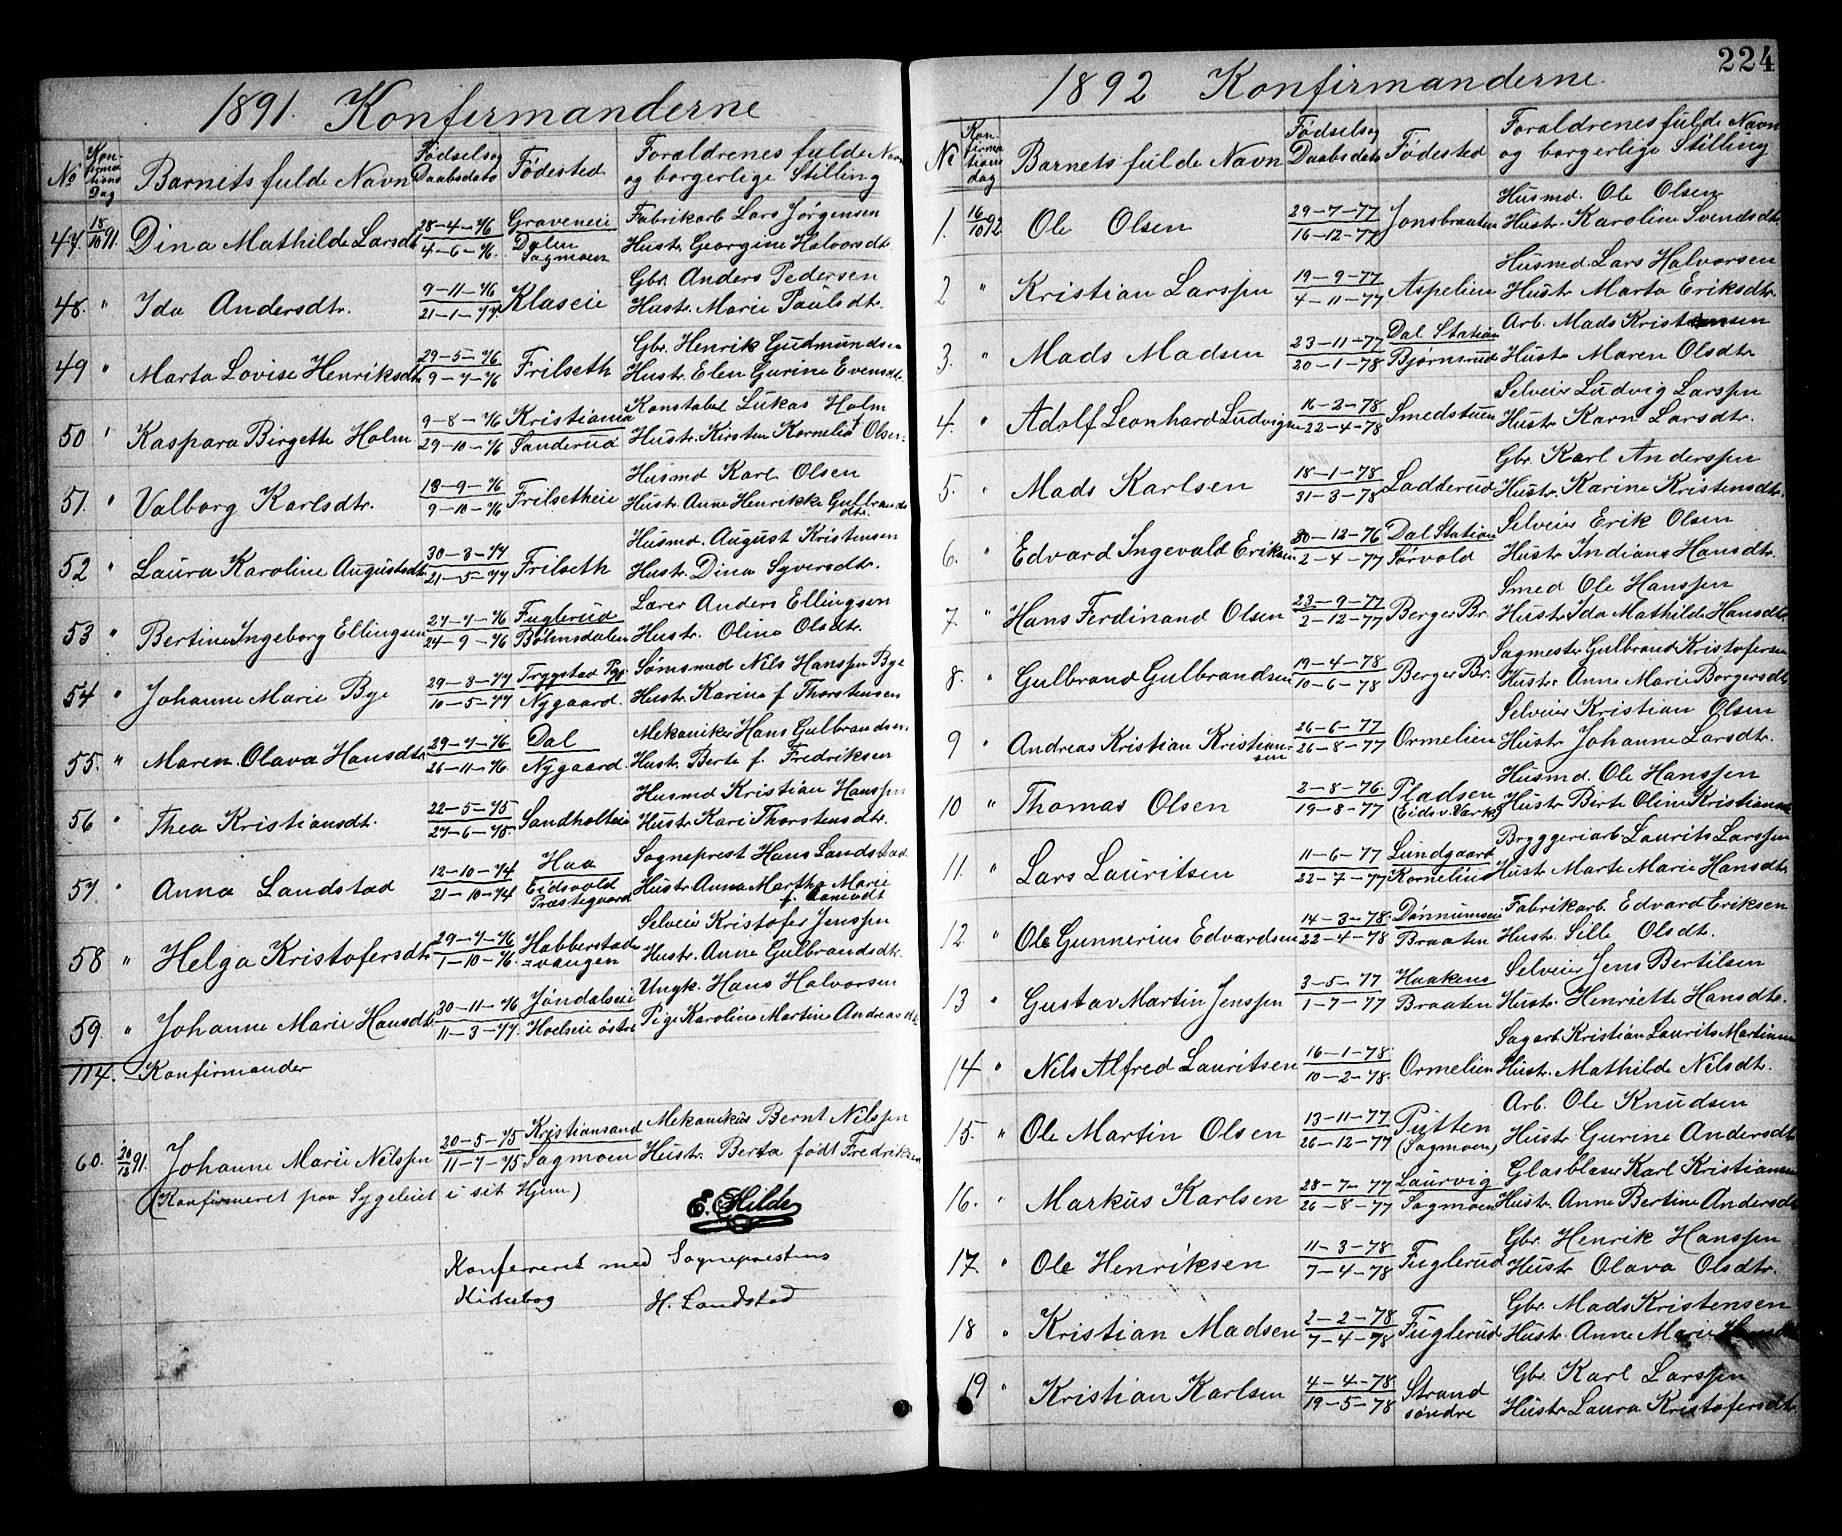 1891. Konfirmanderne
No Konfirmations Dag Barnets fulde Navn Fødsels og Daabsdato Fødested Forældrenes fulde Navn og borgerlige Stilling
47. 18/10 91. Dina Mathilde Larsdt. 28-4-76 Graveneie Fabrikarb Lars Jørgensen
4-6-76. Dalen Sagmoen Hustr. Georgine Halvorsdt.
48. " Ida Andersdtr. 9-11-76 Klaseie Gbr. Anders Pedersen
21-1-77 Hustr. Marie Paulsdtr.
49 " Marta Lovise Henriksdtr 29-5-76 Frilseth Gbr. Henrik Gudmundsen
9-7-76 Hustr. Elen Gurine Evensdtr.
50 " Kaspara Birgette Holm 9-8-76 Kristiania Konstabel Lukas Holm
29-10-76 Sanderud Hustr. Kirsten Kornelia Olsen
51. " Valborg Karlsdtr. 18-9-76 Frilsetheie Husmd Karl Olsen
9-10-76 Hustr. Anne Henrikke Gulbrandsdtr.
52 " Laura Karoline Augustsdtr 30-3-77 Frilseth Husmd. August Kristensen
21-5-77 Hustr. Dina Syversdtr.
53 " Bertine Ingeborg Ellingsen 27-7-76 Fuglerud Lærer Anders Ellingsen
24-9-76 Bøhnsdalen Hustr. Oline Olsdtr.
54 " Johanne Marie Bye 29-3-77 Trygstad Pgj Sømsmed Nils Hanssen Bye
10-5-77 Nygaard. Hustr. Karine f. Thorstensen
55. " Maren Olava Hansdtr 29-7-76 Dal Mekaniker Hans Gulbrandsen.
26-11-76. Nygaard. Hustr. Berte f. Fredriksen
56 " Thea Kristiansdt. 22-5-75 Sandholteie Husmd Kristian Hanssen
27-6-75. Hustr. Kari Thorstensdtr.
57 " Anna Landstad 12-10-74 Haa Sogneprest Hans Landstad
21-10-74 Eidsvold Præstegaard Hustr. Anna Martha Marie f. Aamodt
58 " Helga Kristofersdtr 29-7-76 Habberstad Selveier Kristofer Jenssen
1-10-76. =vangen Hustr. Anne Gulbrandsdt.
59. " Johanne Marie Hansdt. 30-11-76 Jøndalseie Ungk. Hans Halvorsen
11-3-77. Hoelseie østre Pige Karoline Martine Andreasdt
114. Konfirmander
60. 20/12 91. Johanne Marie Nilssen 20-5-75 Kristiansand Mekanikus Bernt Nilssen
11-7-75 Sagmoen Hustr. Berta født Fredriksen
(Konfirmeret paa Sygeleiet i sit Hjem)
E. Hilde
Konfereret med Sogneprestens
Kirkebog H. Landstad
224
1892 Konfirmanderne.
No Konfirmations dag Barnets fulde Navn Fødsels og Daabsdato Fødested Forældrenes fulde Navn og borgerlige Stilling
1. 16/10 92 Ole Olsen 29-7-77 Jonsbraaten Husmd. Ole Olsen
16-12-77 Hustr. Karoline Svendsdt.
2 " Kristian Larssen 19-9-77 Aspelien Husmd. Lars Halvorsen
4-11-77 Hustr Marta Eriksdtr.
3. " Mads Madsen 23-11-77 Dal Station Arb. Mads Kristensen
20-1-78 Bjørnsrud Hustr Maren Olsdtr
4. " Adolf Leonhard Ludvigsen 16-2-78 Smedstuen Selveier Ludvig Larssen
22-4-78 Hustr. Karn Larsdtr.
5. " Mads Karlsen 18-1-78 Ladderud Gbr Karl Anderssen
31-3-78 Hustr. Karine Kristensdtr.
6. " Edvard Ingevald Eriksen 30-12-76 Dal Station Selveier Erik Olsen
2-4-77 Sørvold Hustr Indiana Hansdtr.
7. " Hans Ferdinand Olsen 23-9-77 Berger Br. Smed Ole Hanssen
2-12-77 Hustr Ida Mathilde Hansdtr.
8. " Gulbrand Gulbrandsen 19-4-78 Berger Br. Sagmestr Gulbrand Kristofersen
10-6-78 Hustr. Anne Marie Borgersdt
9 " Andreas Kristian Kristiansen 26-6-77 Ormelien Selveier Kristian Olsen
26-8-77 Hustr. Johanne Larsdtr.
10 " Thomas Olsen 2-8-76. Pladsen Husmd. Ole Hanssen
19-8-77 (Eidsv. Værk) Hustr Birte Oline Kristiansdt
11. " Lars Lauritsen 11-6-77 Lundgaard Bryggeriarb. Laurits Larssen
22-7-77 Kornelius Hustr Marte Marie Hansdtr.
12 " Ole Gunnerius Edvardsen 14-3-78. Dønnumseie Fabrikarb. Edvard Eriksen
22-4-78 Braaten Hustr. Sille Olsdt.
13 " Gustav Martin Jenssen 3-5-77 Haakens Selveier Jens Bertilsen
1-7-77 Braaten Hustr. Henriette Hansdtr.
14 " Nils Alfred Lauritsen 16-1-78. Ormelien Sagarb. Kristian Laurits Martinsen
10-2-78. Hustr. Mathilde Nilsdtr.
15. " Ole Martin Olsen 13-11-77 Putten Arb. Ole Knudsen
26-12-77 (Sagmoen) Hustr. Gurine Andersdt
16. " Markus Karlsen 28-7-77 Laurvig Glasblæser Karl Kristiansen
26-8-77 Sagmoen Hustr. Anne Bertine Andersdt
17. " Ole Henriksen 11-3-78 Fuglerud Gbr. Henrik Hanssen
7-4-78 Hustr Olava Olsdtr.
18 " Kristian Madsen 2-2-78 Fuglerud Gbr. Mads Kristensen
7-4-78 Hustr. Anne Marie
19 " Kristian Karlsen 4-4-78 Strand Gbr. Karl Larssen
19-5-78 søndre Hustr Laura Kristofersdtr.